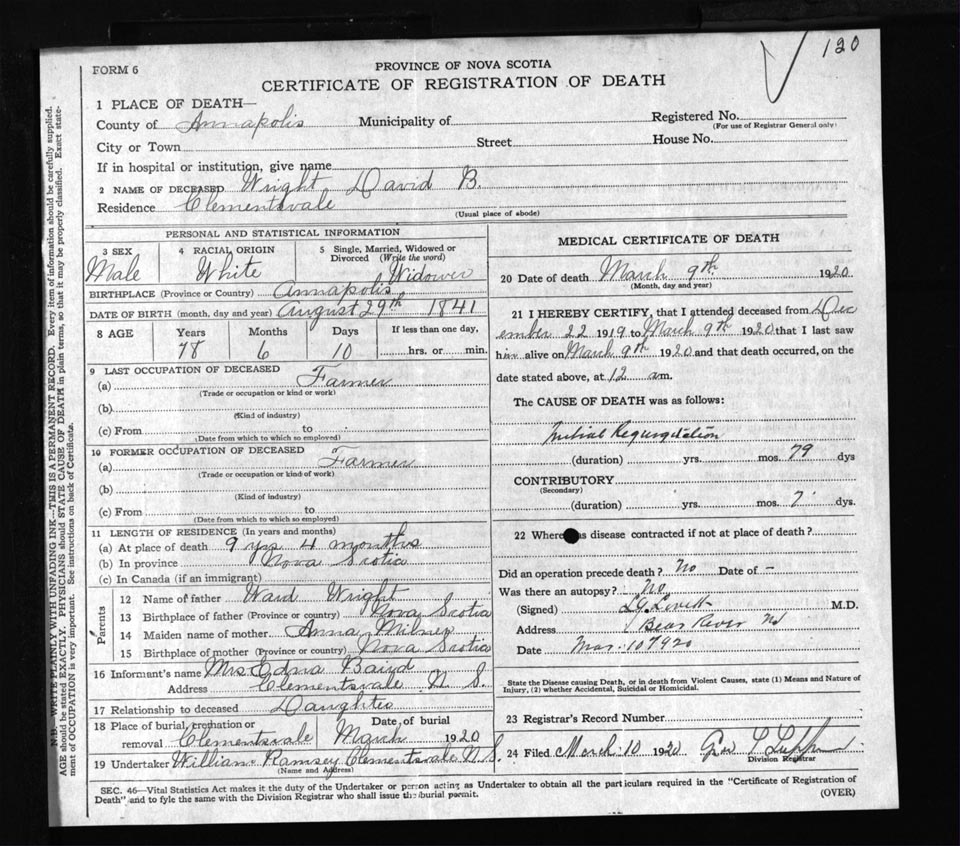 120
FORM 6
PROVINCE OF NOVA SCOTIA
CERTIFICATE OF REGISTRATION OF DEATH
1 PLACE OF DEATH—
County of Annapolis Municipality of Registered No.
(For use of Registrar General only)
City or Town Street House No.
If in hospital or institution, give name
2 NAME OF DECEASED Wright David B.
Residence Clementsvale
(Usual place of abode)
PERSONAL AND STATISTICAL INFORMATION
3 SEX 4 RACIAL ORIGIN 5 Single, Married, Widowed or Divorced (Write the word)
Male White Widower
BIRTHPLACE (Province or Country) Annapolis
DATE OF BIRTH (month, day and year) August 29th 1841
8 AGE Years Months Days If less than one day,
78 6 10 hrs. or min.
9 LAST OCCUPATION OF DECEASED
(a) Farmer
(Trade or occupation or kind or work)
(b)
(Kind of industry)
(c) From to
(Date from which to which so employed)
10 FORMER OCCUPATION OF DECEASED
(a) Farmer
(Trade or occupation or kind of work)
(b)
(Kind of industry)
(c) From to
(Date from which to which so employed)
11 LENGTH OF RESIDENCE (In years and months)
(a) At place of death 9 yrs 4 months
(b) In province Nova Scotia
(c) In Canada (if an immigrant)
Parents
12 Name of father Ward Wright
13 Birthplace of father (Province or country) Nova Scotia
14 Maiden name of mother Anna Milner
15 Birthplace of mother (Province or country) Nova Scotia
16 Informant's name Mrs Edna Baird
Address Clementsvale N S.
17 Relationship to deceased Daughter
18 Place of burial, cremation or removal Clementsvale Date of burial March 1920
19 Undertaker William Ramsey Clementsvale N.S.
(Name and Address)
MEDICAL CERTIFICATE OF DEATH
20 Date of death March 9th 1920
(Month, day and year)
21 I HEREBY CERTIFY, that I attended deceased from Dec
ember 22 1919 to March 9th 1920 that I last saw
him alive on March 9th 1920 and that death occurred, on the
date stated above, at 12 am.
The CAUSE OF DEATH was as follows:
Mitral Regurgitation
(duration) yrs. mos. 79 dys
CONTRIBUTORY
(Secondary)
(duration) yrs. mos. 7 dys.
22 Where disease contracted if not at place of death?
Did an operation precede death? No Date of –
Was there an autopsy? No
(Signed) Lovett M.D.
Address Bear River NS
Date Mar. 10 1920
State the Disease causing Death, or in death from Violent Causes, state (1) Means and Nature of
Injury, (2) whether Accidental, Suicidal or Homicidal.
23 Registrar's Record Number
24 Filed March 10 1920
Division Registrar
SEC. 46—Vital Statistics Act makes it the duty of the Undertaker or person acting as Undertaker to obtain all the particulars required in the "Certificate of Registration of
Death" and to fyle the same with the Division Registrar who shall issue the burial permit. (OVER)
N.B. WRITE PLAINLY WITH UNFADING INK—THIS IS A PERMANENT RECORD. Every item of information should be carefully supplied.
AGE should be stated EXACTLY. PHYSICIANS should STATE CAUSE OF DEATH in plain terms, so that it may be properly classified. Exact state-
ment of OCCUPATION is very important. See instructions on back of Certificate.